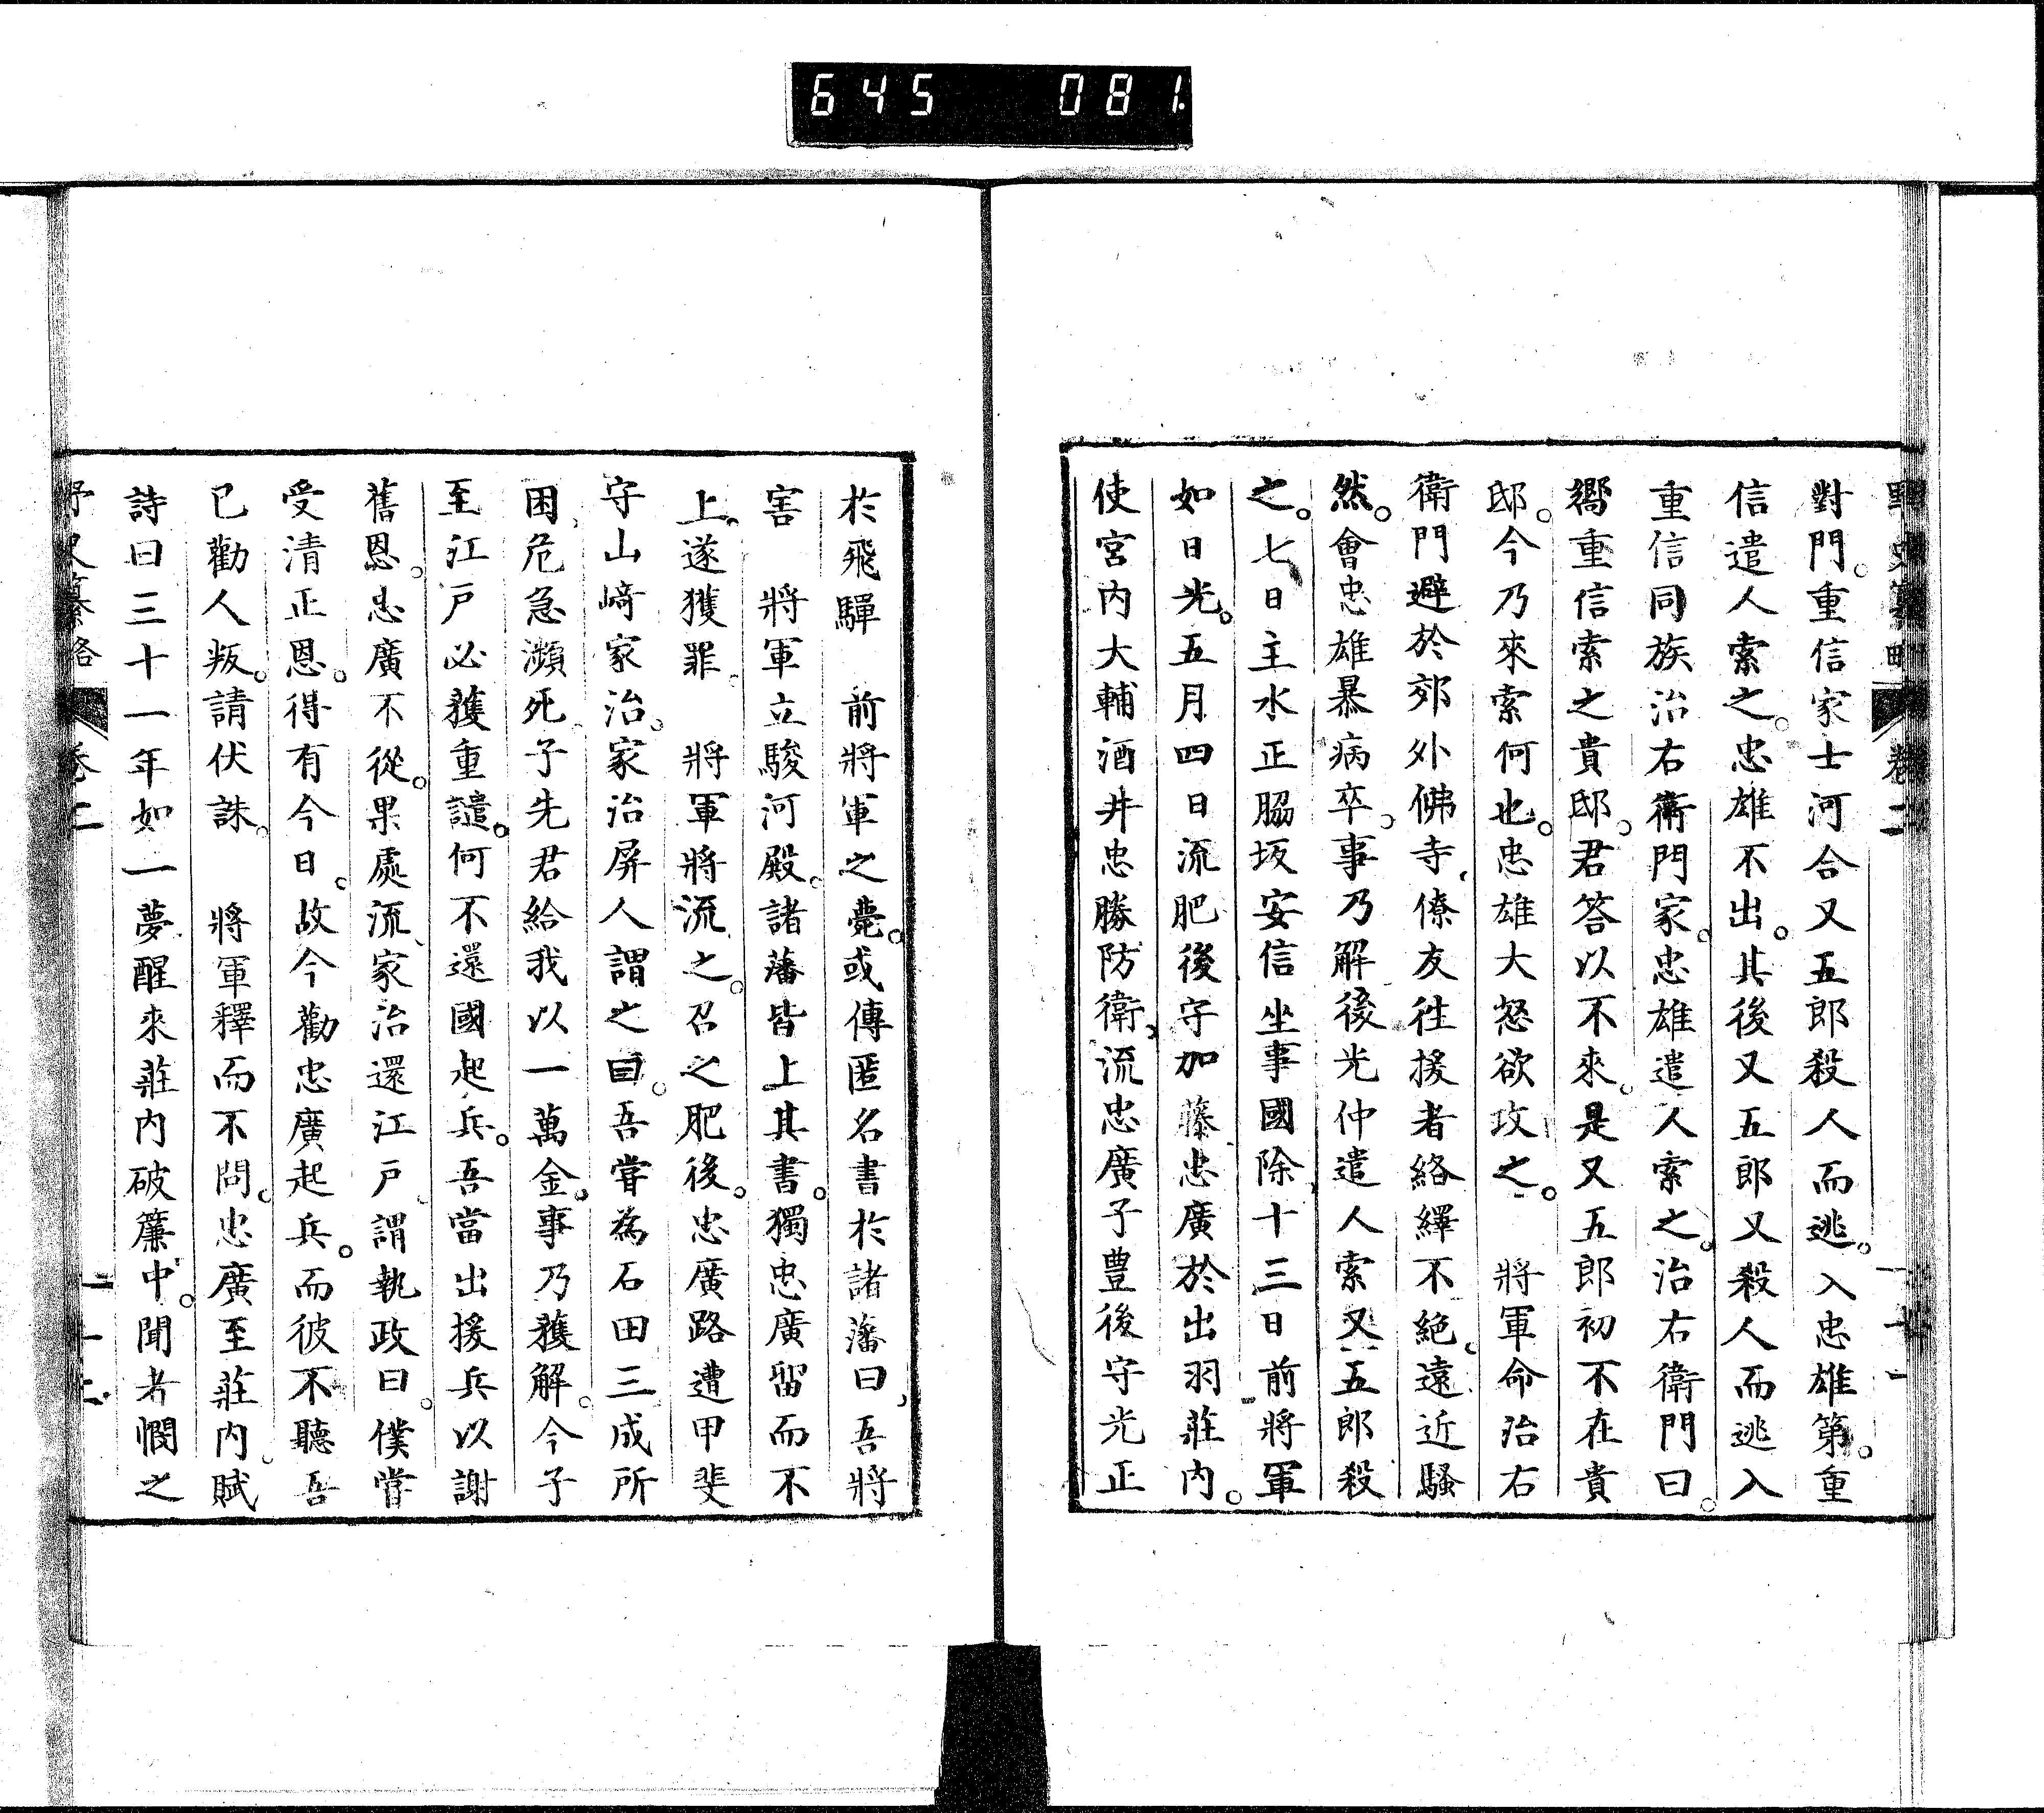 645 081
野史纂略 卷二
對門。重信家士河合又五郎殺人而逃。入忠雄第。重
信遣人索之。忠雄不出。其後又五郎又殺人而逃入
重信同族治右衛門家。忠雄遣人索之。治右衛門曰。
嚮重信索之貴邸。君答以不來。是又五郎初不在貴
邸。今乃來索何也。忠雄大怒欲攻之。　將軍命治右
衛門避於郊外佛寺、僚友往援者絡繹不絕、遠近騷
然。會忠雄暴病卒。事乃解後光仲遣人索又五郎殺
之。七日主水正脇坂安信坐事國除、十三日前將軍
如日光。五月四日流肥後守加藤忠廣於出羽莊内。
使宮内大輔酒井忠勝防衛、流忠廣子豊後守光正
於飛驒　前將軍之薨。或傳匿名書於諸藩曰、吾將
害　將軍立駿河殿。諸藩皆上其書。獨忠廣留而不
上。遂獲罪。　將軍將流之。召之肥後。忠廣路遭甲斐
守山﨑家治。家治屏人謂之曰。吾嘗為石田三成所
困、危急瀕死、子先君給我以一萬金。事乃獲解。今子
至江戸必獲重譴。何不還國起兵。吾當出援兵以謝
舊恩。忠廣不從。果處流、家治還江戸、謂執政曰。僕嘗
受清正恩。得有今日。故今勸忠廣起兵。而彼不聽吾
已勸人叛。請伏誅。　將軍釋而不問。忠廣至莊内。賦
詩曰三十一年如一夢醒來莊内破簾中。聞者憫之
野史纂略 卷二